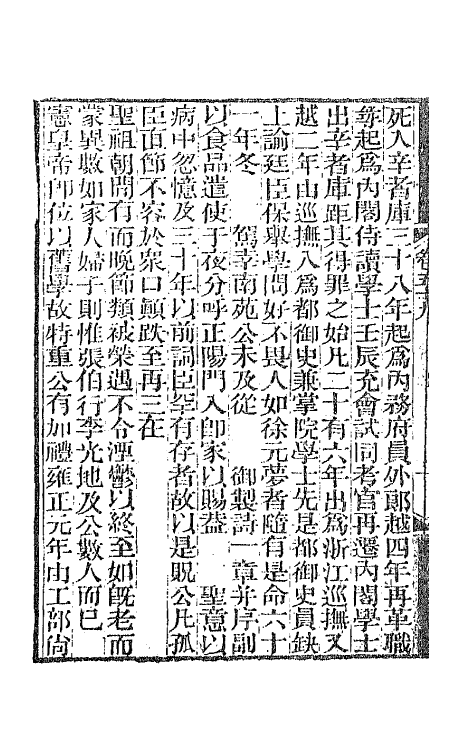 死入辛者庫三十八年起爲內務府員外郎越四年再革職
尋起爲內閣侍讀學士壬辰充會試同考官再遷內閣學士
出辛者庫距其得罪之始凡二十有六年出爲浙江巡撫又
越二年由巡撫入爲都御史兼掌院學士先是都御史員缺
上諭廷臣保舉學問好不畏人如徐元夢者隨有是命六十
一年冬 駕幸南苑公未及從 御製詩一章并序副
以食品遣使于夜分呼正陽門入卽家以賜蓋 聖意以
病中忽憶及三十年以前詞臣罕有存者故以是貺公凡孤
臣直節不容於衆口顚跌至再三在
聖祖朝間有而晚節類被榮遇不令湮鬱以終至如旣老而
蒙異數如家人婦子則惟張伯行李光地及公數人而已
憲皇帝卽位以舊學故特重公有加禮雍正元年由工部尙